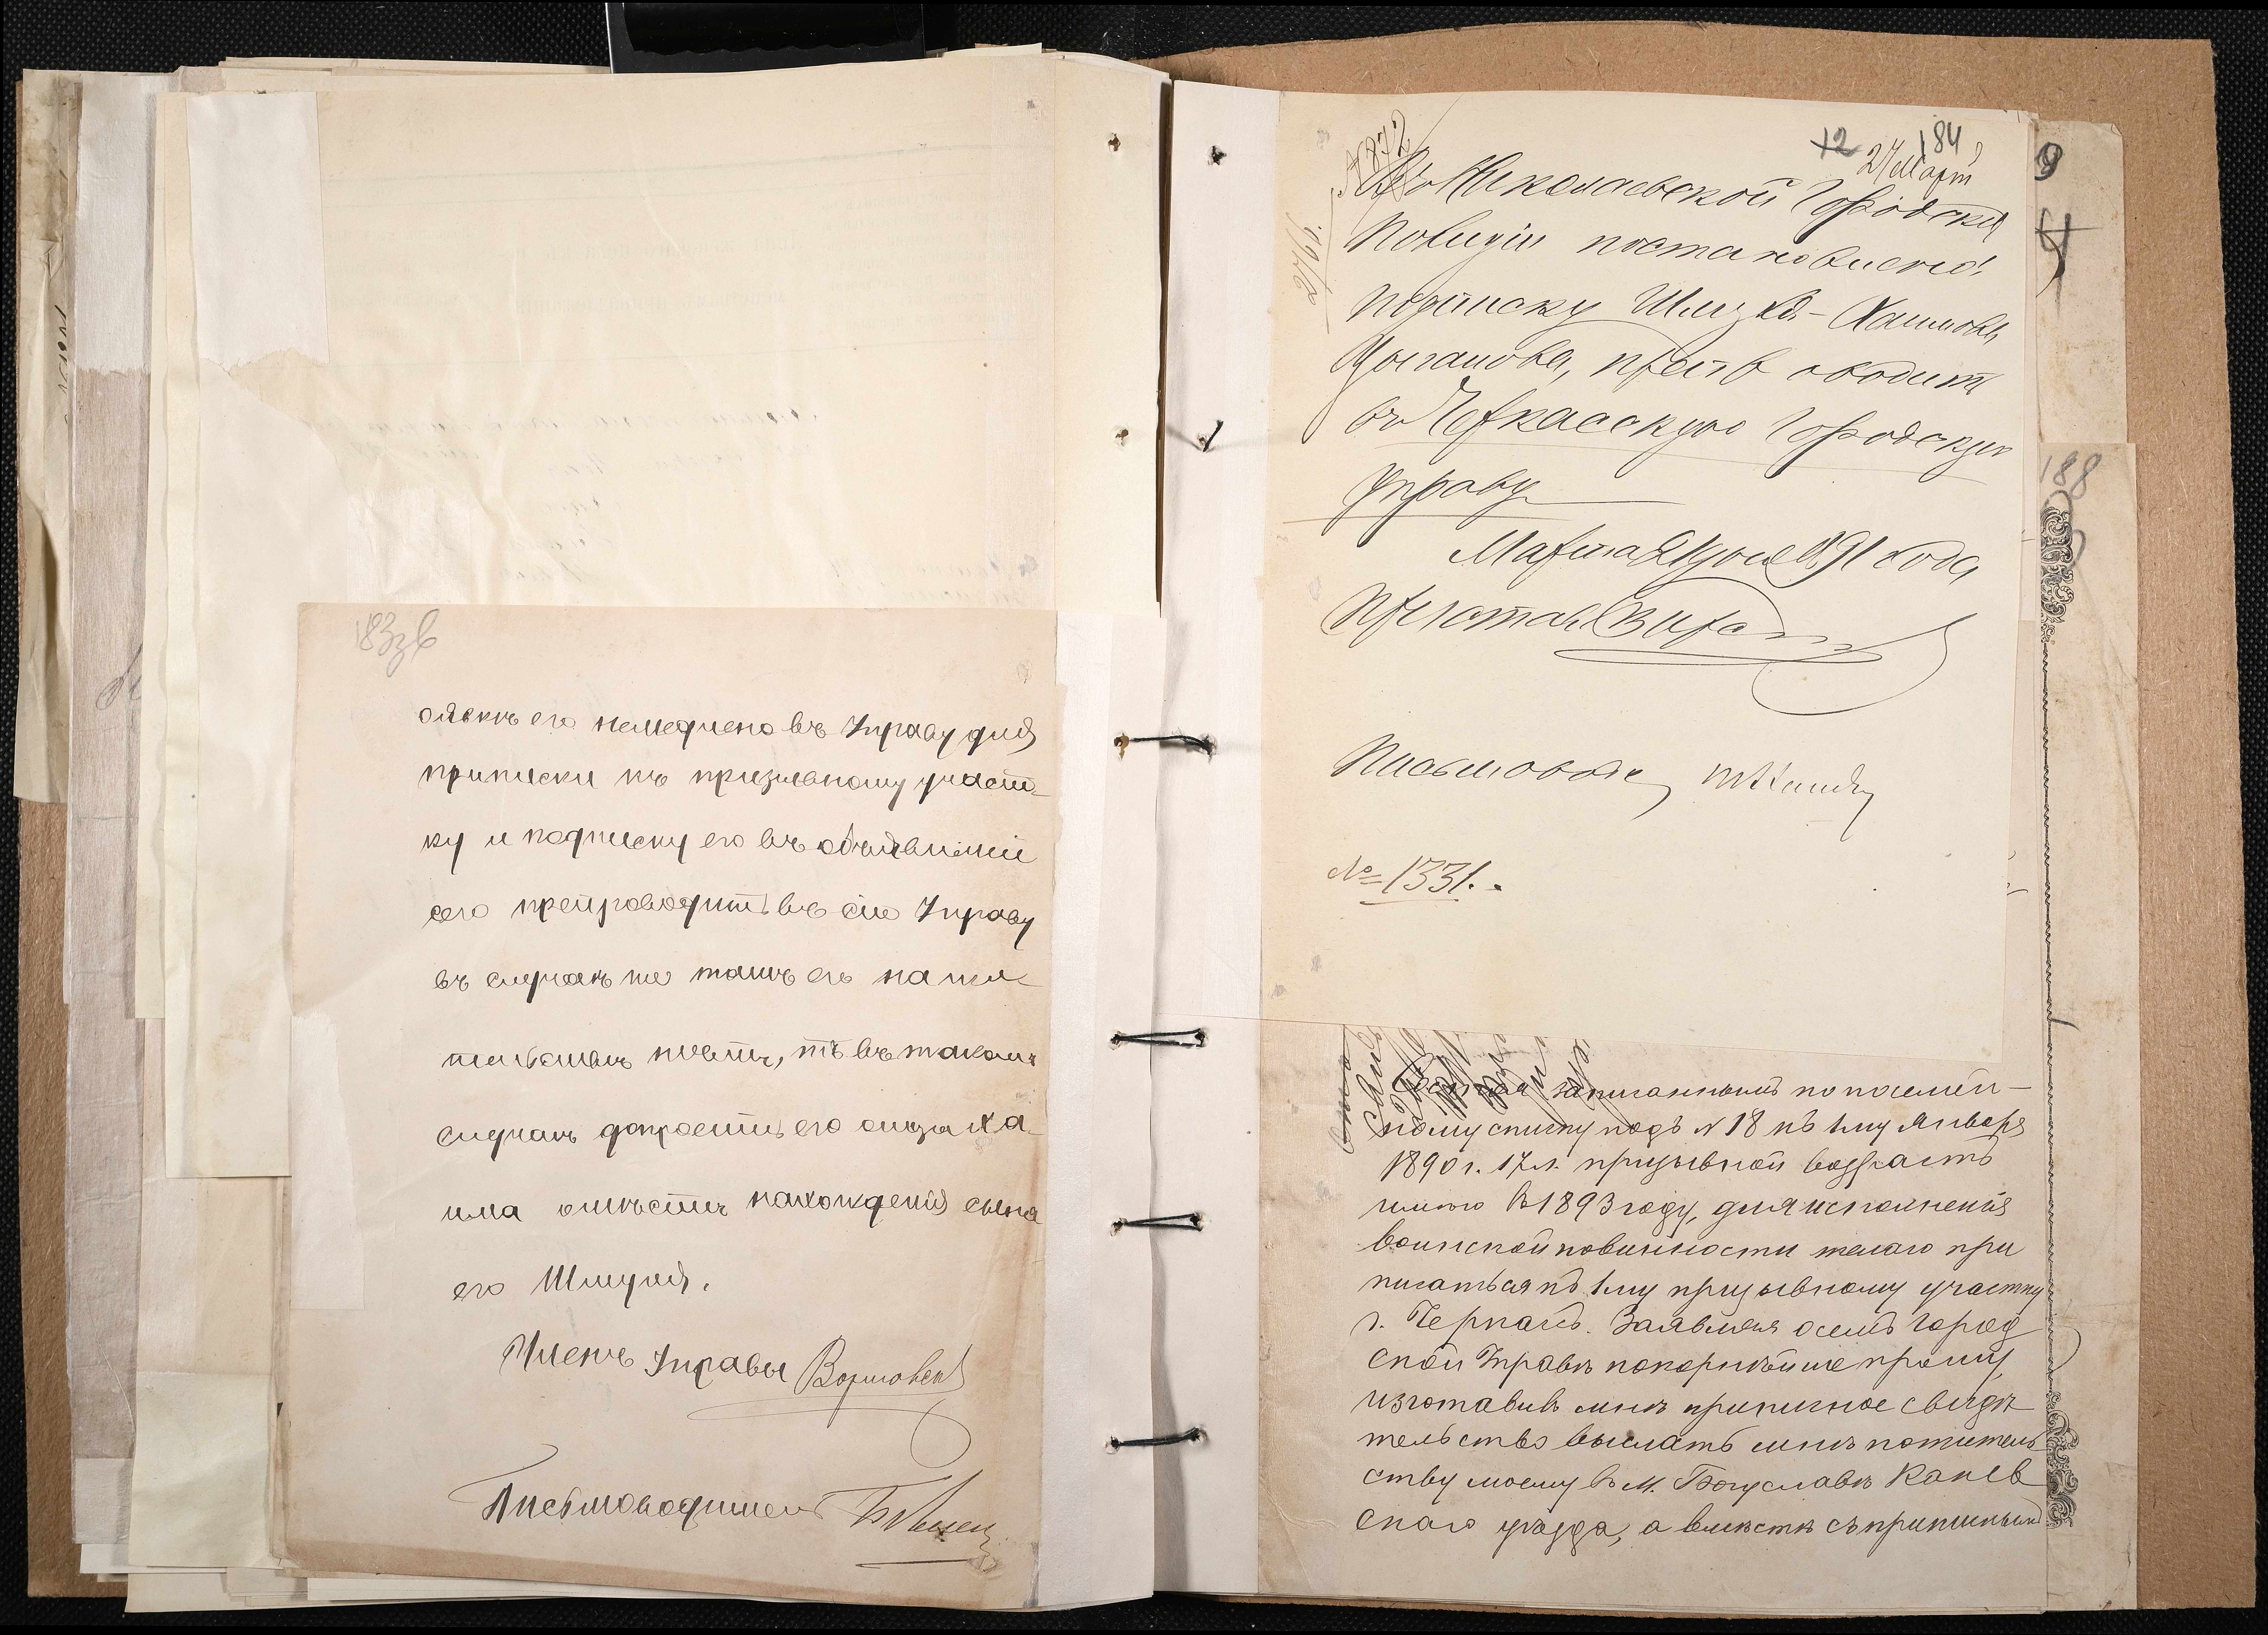 183зв
его немедлено въ Управу для
приписки къ призывному участ-
ку и подписку его въ объявлении
сего препроводить въ сiю Управу
въ случаѣ же тамъ его на жи-
тельствѣ нѣтъ, то въ таком
случаѣ допросить его отца Ха-
има о мѣстѣ нахожденiя сына
его Шмуля.
Членъ Управы
Письмоводитель
12 184
27 Март
№ 872
27/III 91.
Въ Николаевской Городской
Полицiи постановлено:
подписку Шмуля-Хаимова
Цыганова, препроводить
въ Черкасскую Городскую
Управу
Марта дня 1891 года
Приставъ
Письмоводит
№ 1331.
9
188
записаннымъ по посемей-
ному списку подъ № 18 къ 1му Января
1890 г. 17 л. призывной возрастъ
имѣю въ 1893 году, для исполненiя
воинской повинности желаю при
писаться къ 1му призывному участку
г. Черкасъ. Заявляя о семъ Город
ской Управѣ покорнѣйше прошу,
изготавивъ мнѣ приписное свидѣ
тельство выслать мнѣ по житель
ству моему въ м. Богуславъ Канев
скаго уѣзда, а вмѣстѣ съ приписным